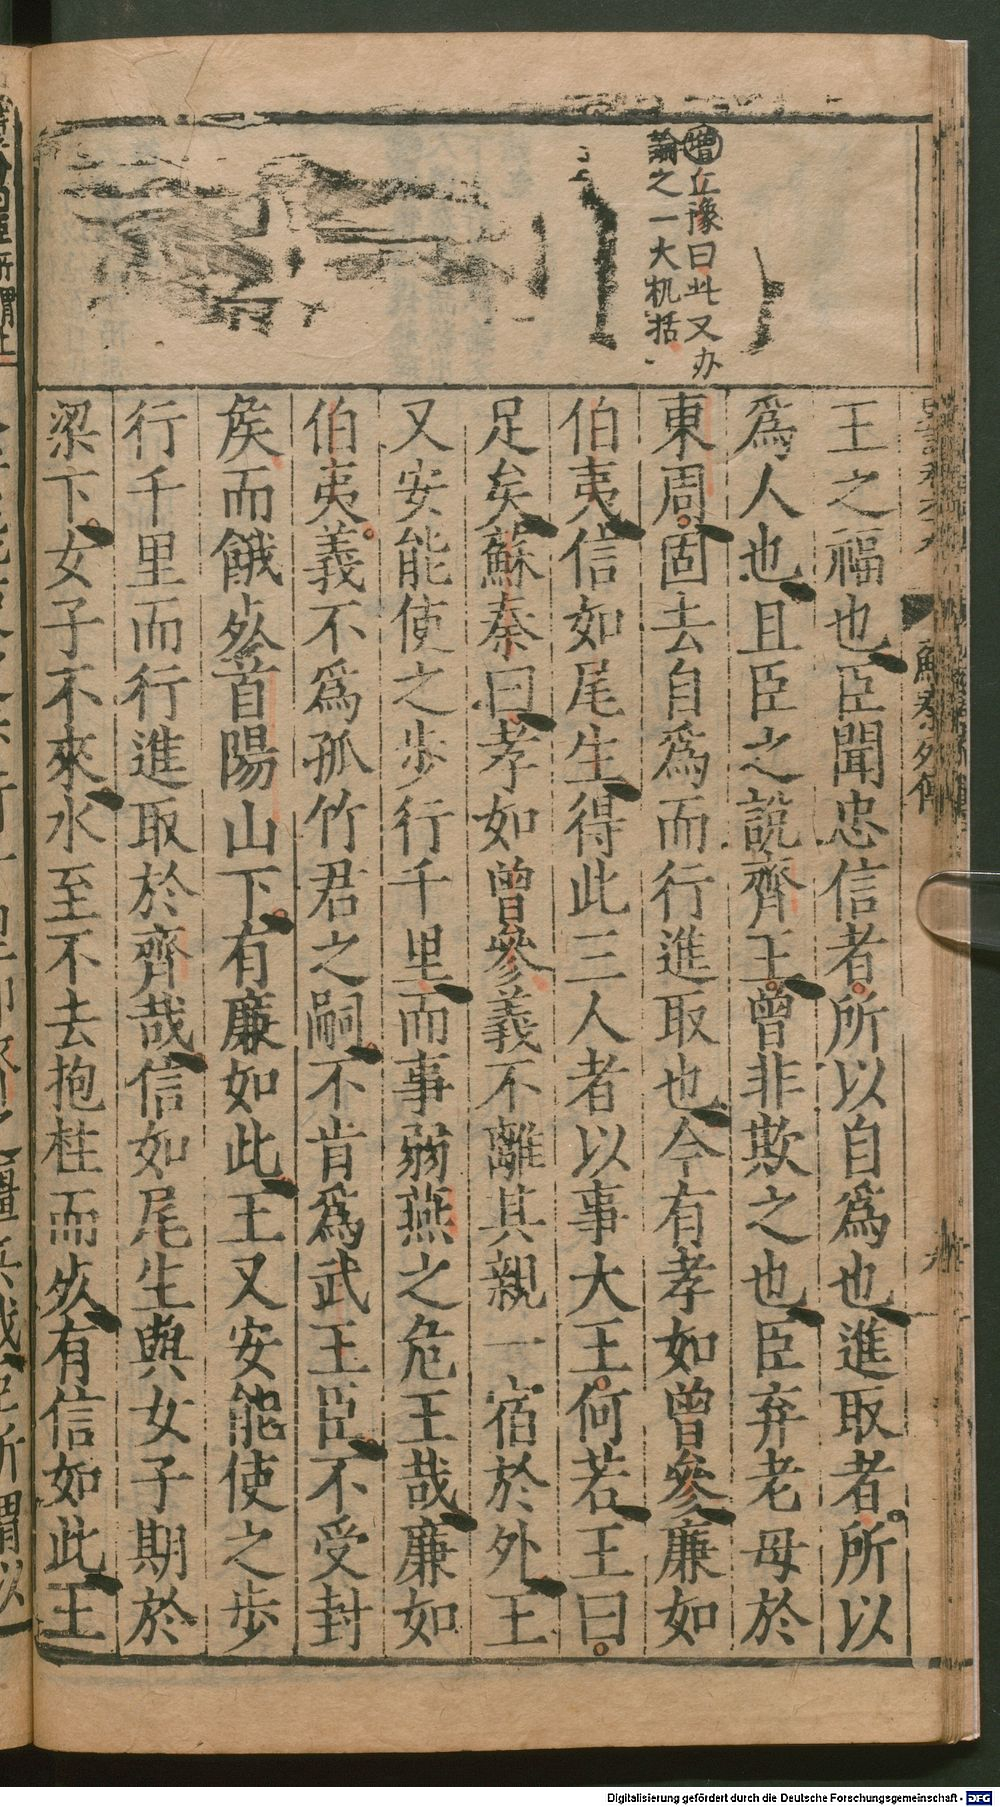 增丘豫曰此又办
論之一大机括
王之福也臣聞忠信者所以自爲也進取者所以
爲人也且臣之說齊王曾非欺之也臣弃老母於
東周固去自爲而行進取也今有孝如曾參廉如
伯夷信如尾生得此三人者以事大王何若王曰
足矣蘇秦曰孝如曾參義不離其親一宿於外王
又安能使之歩行千里而事弱燕之危王哉廉如
伯夷義不爲孤竹君之嗣不肯爲武王臣不受封
矦而餓死首陽山下有廉如此王又安能使之歩
行千里而行進取於齊哉信如尾生與女子期於
梁下女子不來水至不去抱柱而死有信如此王
蘇秦列傳
Digitalisierung gefördert durch die Deutsche Forschungsgemeinschaft - DFG